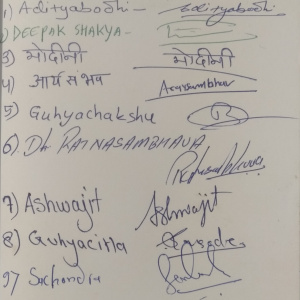 1) Adityabodhi - Adityabodhi
2) DEEPAK SHAKYA -
3) मोदीनी मोदीनी
4) आर्यसंभव Aryasambhav
5) Guhyachakshu
6) Dh RATNASAMBHAVA
7) Ashwajit Ashwajit
8) Guhyacitta
9) Suchandra